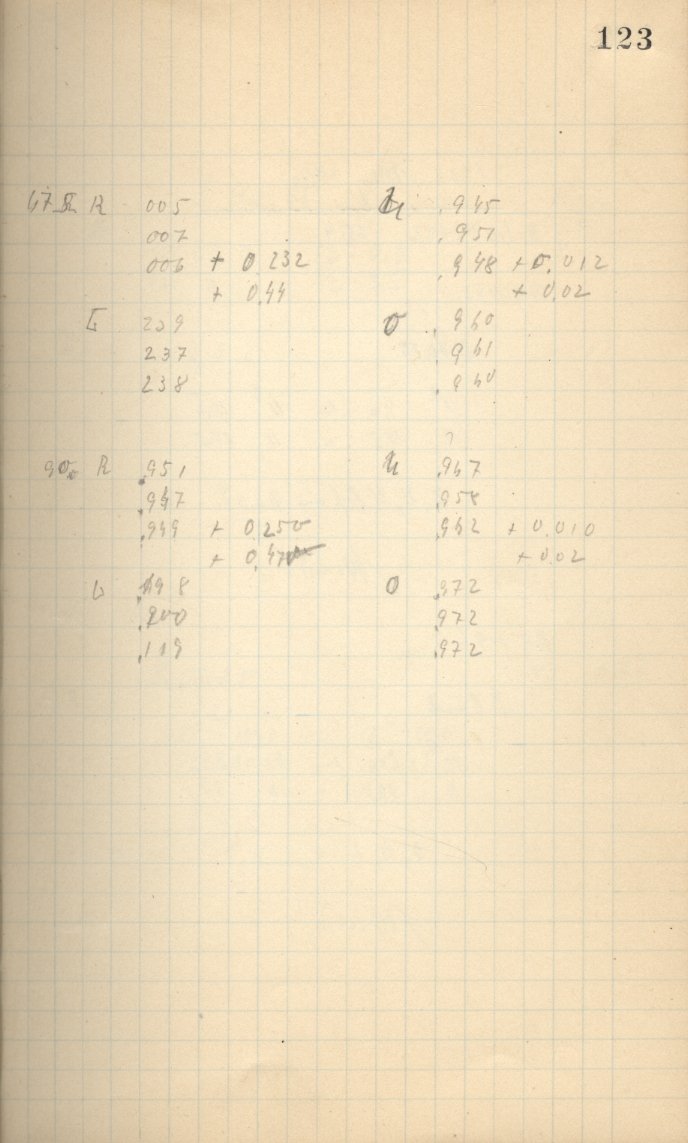 123
R 005 U .945
007 .951
006 + 0.232 .948 + 0.012
+ 0.44 + 0.02
L 239 O .960
237 .961
238 .960
?
90. R .951 U .967
.947 .958
.949 + 0.250 .962 + 0.010
+ 0.47 + 0.02
L .198 O .972
.200 .972
.199 .972